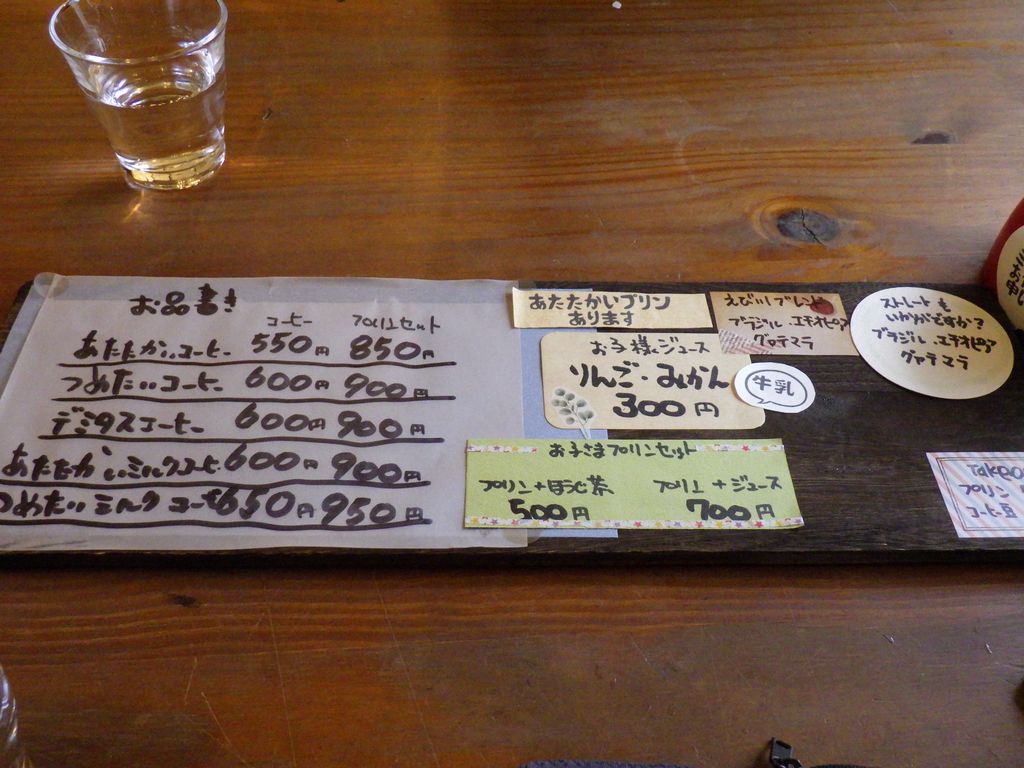 お品書き
コーヒー プリンセット
あたたかいコーヒー 550円 850円
つめたいコーヒー 600円 900円
デミタスコーヒー 600円 900円
あたたかいミルクコーヒー 600円 900円
つめたいミルクコーヒー 650円 950円
あたたかいプリン
あります
えびいりブレンド
ブラジル エチオピア
グァテマラ
ストレートも
いかがですか?
ブラジル エチオピア
グァテマラ
お子様ジュース
りんご・みかん
300円
牛乳
お子さまプリンセット
プリン+ほうじ茶 プリン+ジュース
500円 700円
プリン
コーヒー豆